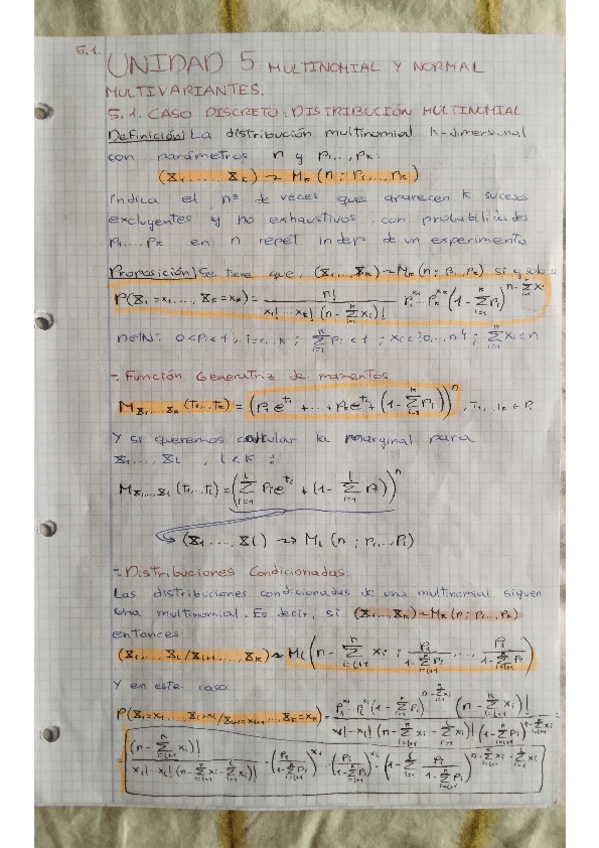 5.1.
UNIDAD 5 MULTINOMIAL Y NORMAL
MULTIVARIANTES.
5.1. CASO DISCRETO: DISTRIBUCIÓN MULTINOMIAL
Definición) La distribución multinomial k-dimensional
con parámetros n y p₁,..,pₖ:
(X₁,...,Xₖ) ~> Mₖ(n; p₁,..,pₖ)
indica el nº de veces que aparecen k sucesos
excluyentes y no exhaustivos, con probabilidades
p₁,..pₖ en n repet indep de un experimento
Proposición) Se tiene que, (X₁,..,Xₖ) ~> Mₖ(n; p₁,..,pₖ) si y solo si
P(X₁=x₁,..., Xₖ=xₖ) = n! / (x₁!...xₖ! (n-Σxᵢ)!) p₁^x₁..pₖ^xₖ (1-Σpᵢ)^(n-Σxᵢ)
n∈ℕ; 0<pᵢ<1, i=1,..,k; Σpᵢ<1; xᵢ∈{0,..,n}; Σxᵢ≤n
-. Función Generatriz de momentos
M_X₁,..,Xₖ (t₁,..,tₖ) = (p₁e^t₁+...+pₖe^tₖ+(1-Σpᵢ))ⁿ, t₁,..,tₖ∈R
Y si queremos calcular la marginal para
X₁,...,Xₗ, l<k:
M_X₁,..,Xₗ (t₁,..,tₗ) = (Σpᵢe^tᵢ + (1-Σpᵢ))ⁿ
(X₁,...,Xₗ) ~> Mₗ(n; p₁,..,pₗ)
-. Distribuciones Condicionadas.
Las distribuciones condicionadas de una multinomial siguen
una multinomial. Es decir, si (X₁,..,Xₖ) ~> Mₖ(n; p₁,..,pₖ)
entonces
(X₁,...,Xₗ/Xₗ₊₁,...,Xₖ) ~> Mₗ(n-Σxᵢ; p₁/(1-Σpᵢ),...,pₗ/(1-Σpᵢ))
Y en este caso:
P(X₁=x₁,..,Xₗ=xₗ/Xₗ₊₁=xₗ₊₁,...,Xₖ=xₖ) =
(n-Σxᵢ)! / (x₁!..xₗ! (n-Σxᵢ-Σxᵢ)!) · (p₁/(1-Σpᵢ))^x₁ ... (pₗ/(1-Σpᵢ))^xₗ · (1-Σ pᵢ/(1-Σpᵢ))^(n-Σxᵢ-Σxᵢ)